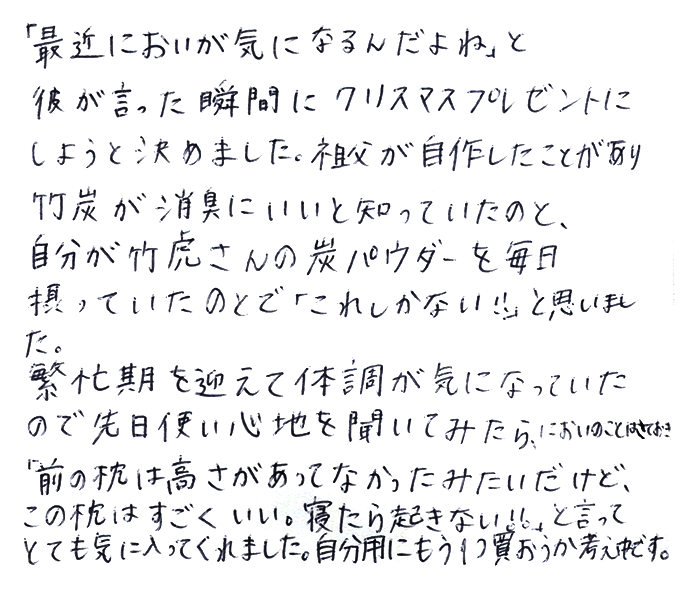 「最近においが気になるんだよね」と
彼が言った瞬間にクリスマスプレゼントに
しようと決めました。祖父が自作したことがあり
竹炭が消臭にいいと知っていたのと、
自分が竹虎さんの炭パウダーを毎日
摂っていたのとで「これしかない!!」と思いまし
た。
繁忙期を迎えて体調が気になっていた
ので先日使い心地を聞いてみたら、においのことはさておき
「前の枕は高さがあってなかったみたいだけど、
この枕はすごくいい。寝たら起きない!!。」と言って
とても気に入ってくれました。自分用にもう1つ買おうか考え中です。